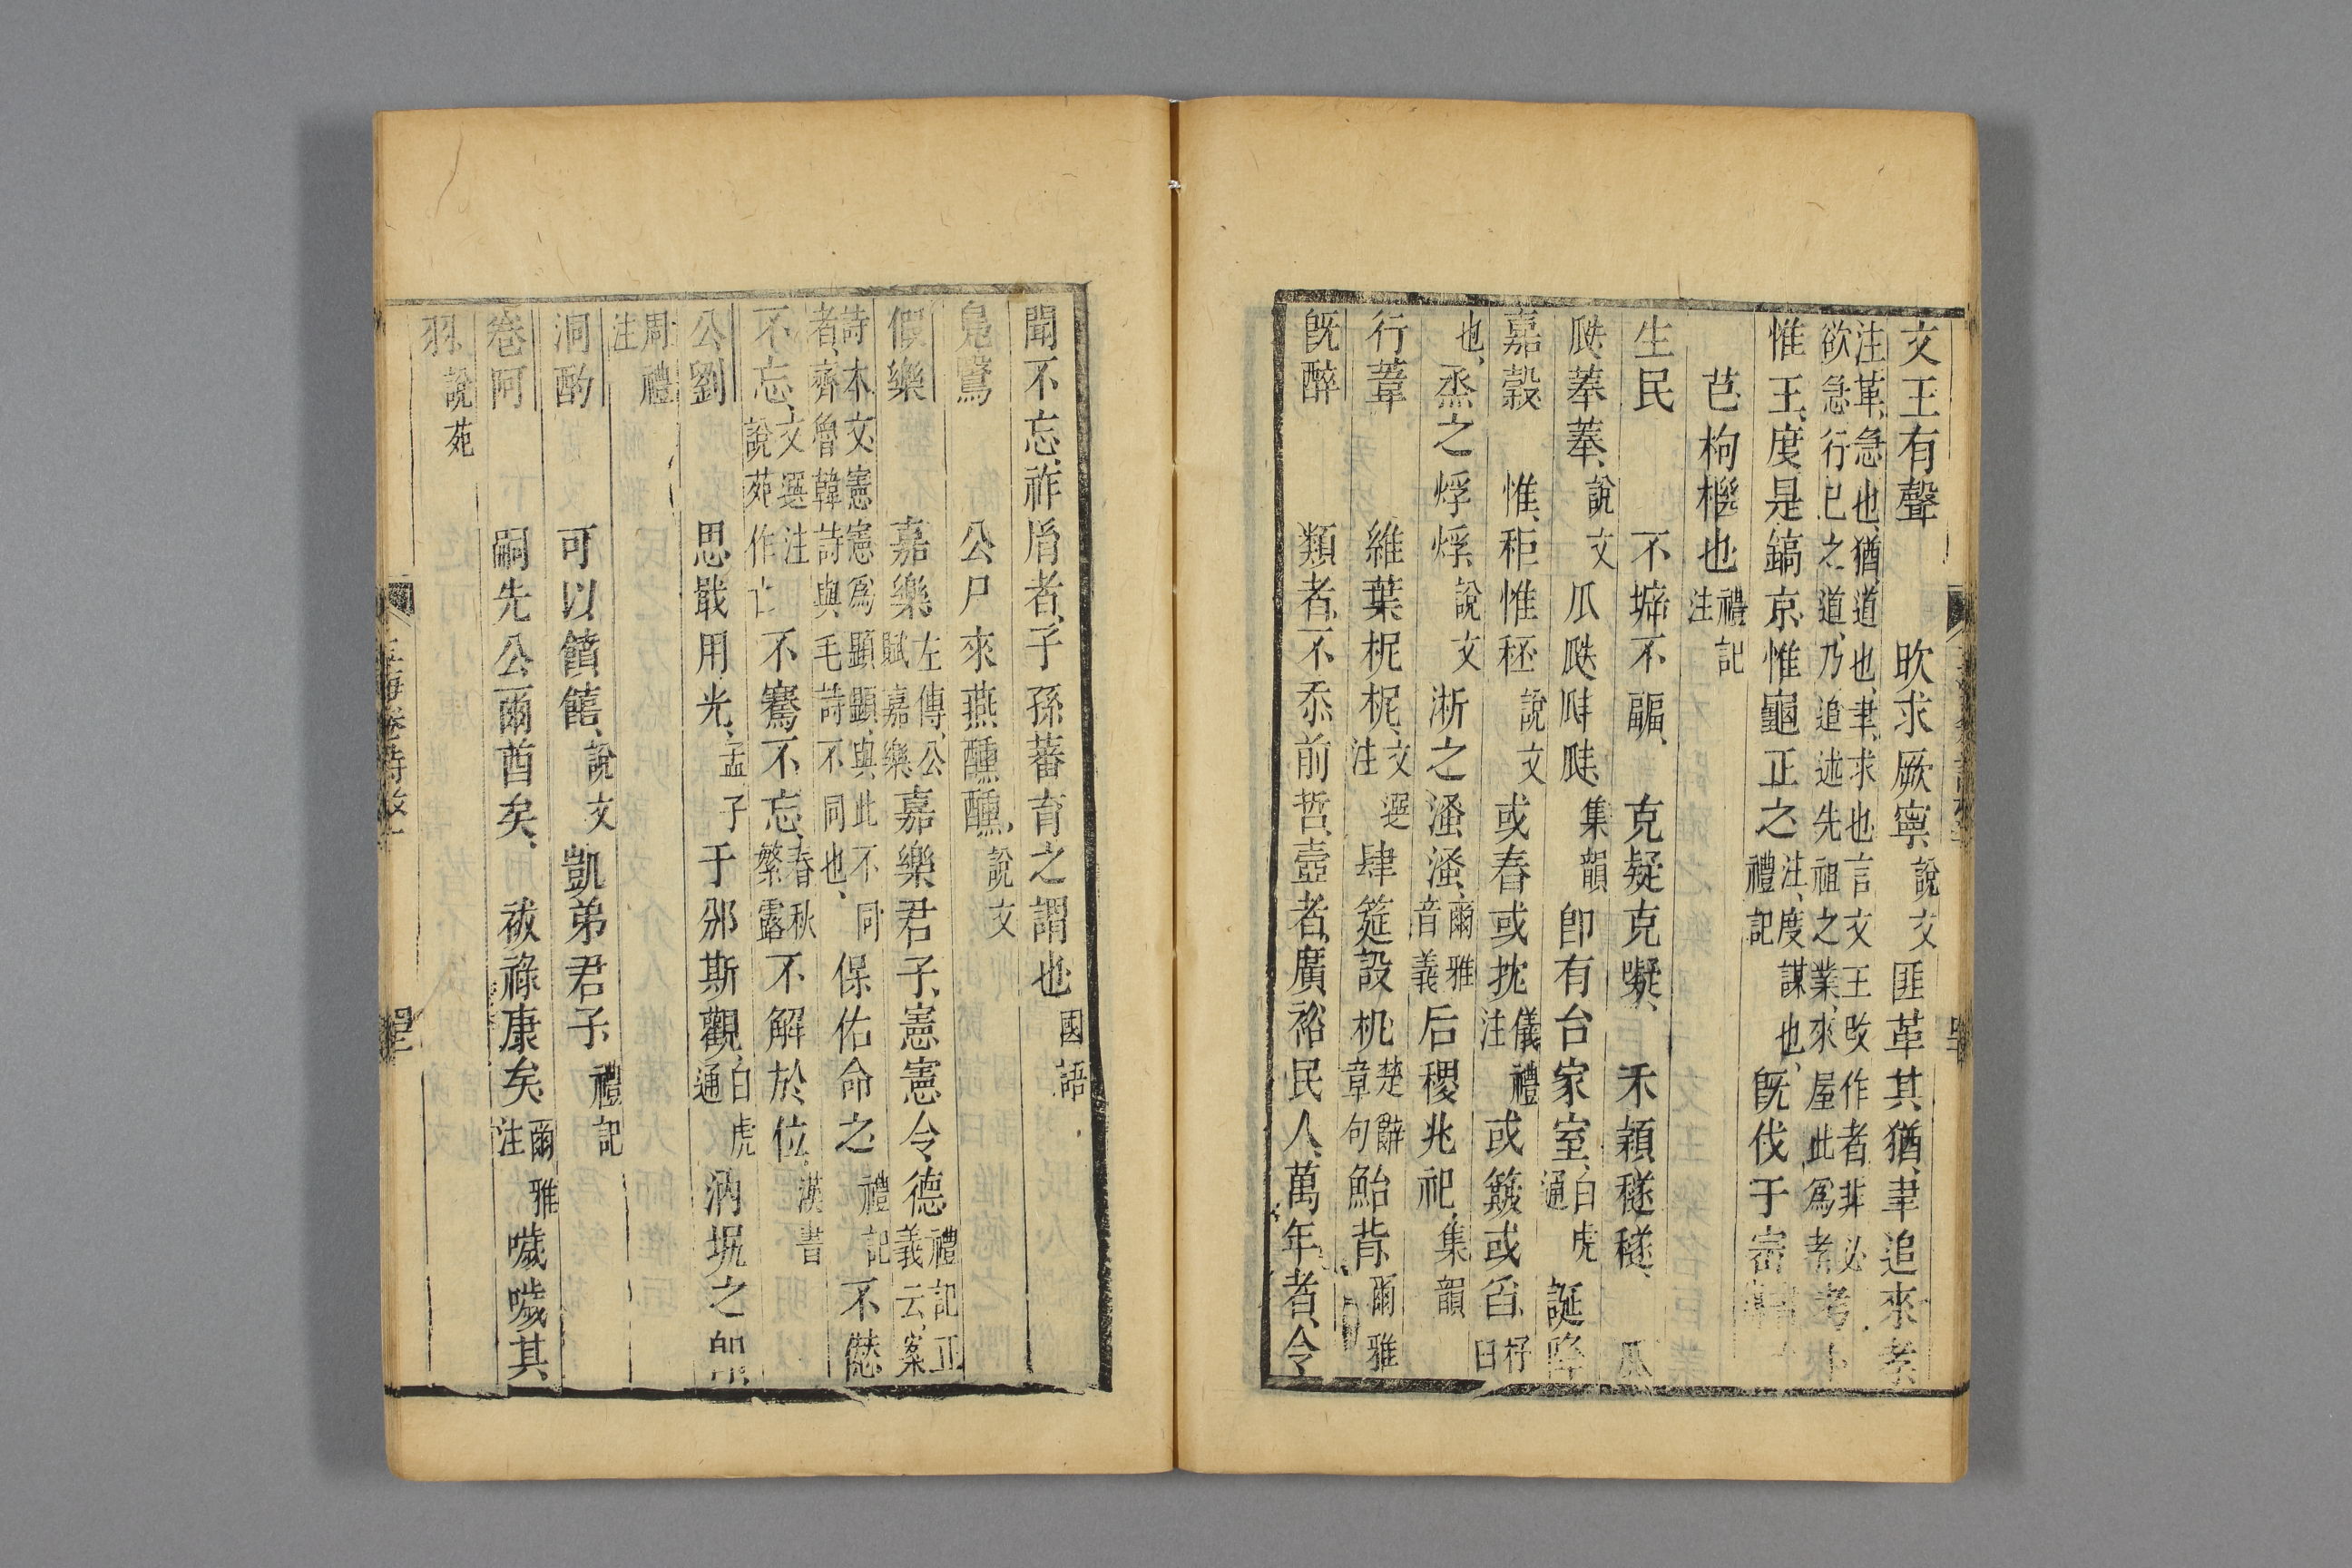 文王有聲　昳求厥寧說文匪革其猶聿追來孝
注革急也猶道也聿求也言文王改作者非必
欲急行己之道乃追述先祖之業來居此爲孝
惟王度是鎬京惟龜正之注度謀也禮記旣伐于崇
芑枸檵也禮記注
生民　不㙞不疈　克疑克嶷　禾穎穟穟　瓜
瓞菶菶說文瓜瓞瓣瓞集韻卽有台家室白虎通誕降
嘉穀惟秬惟秠說文或舂或抌儀禮注或簸或舀杼臼
也烝之烰烰說文淅之溞溞爾雅音義后稷兆祀集韻
行葦　維葉柅柅文選注肆筵設机楚辭章句鮐背爾雅
旣醉　類者不忝前哲壼者廣裕民人萬年者令
聞不忘祚胤者子孫蕃育之謂也國語
鳧鷖　公尸來燕醺醺說文
假樂　嘉樂左傳公賦嘉樂嘉樂君子憲憲令德禮記正義云案
詩本文憲憲爲顯顯與此不同
者齊魯韓詩與毛詩不同也保佑命之禮記不僛
不忘文選注說苑作亡不騫不忘春秋繁露不解於位漢書
公劉　思戢用光孟子于邠斯觀白虎通汭坭之
周禮注
泂酌　可以饙饎說文凱弟君子禮記
卷阿　嗣先公爾酋矣祓祿康矣爾雅注噦噦其
羽說苑